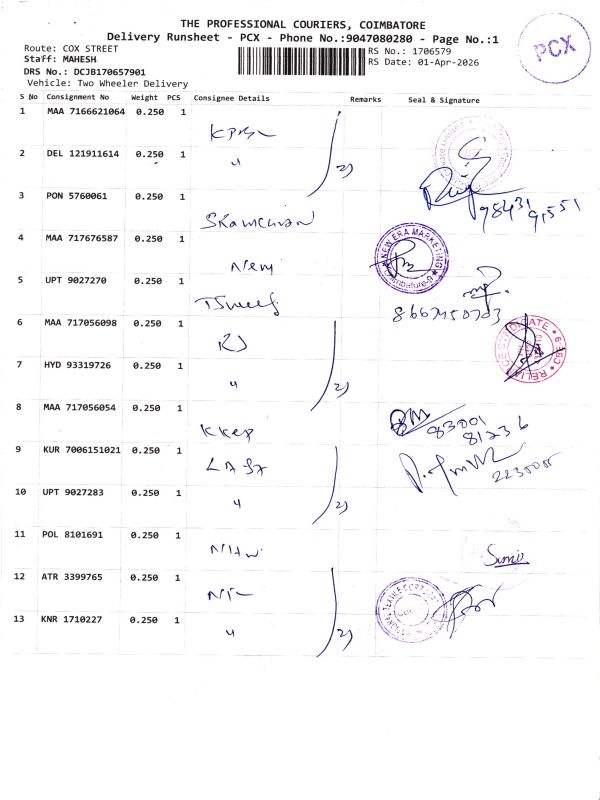 THE PROFESSIONAL COURIERS, COIMBATORE
Delivery Runsheet - PCX - Phone No.:9047080280 - Page No.:1
Route: COX STREET
Staff: MAHESH
DRS No.: DCJB170657901
Vehicle: Two Wheeler Delivery
RS No.: 1706579
RS Date: 01-Apr-2026
PCX
S No Consignment No Weight PCS Consignee Details Remarks Seal & Signature
1 MAA 7166621064 0.250 1
2 DEL 121911614 0.250 1 " 2)
3 PON 5760061 0.250 1
4 MAA 717676587 0.250 1 New
NEW ERA MARKETING
5 UPT 9027270 0.250 1
6 MAA 717056098 0.250 1 RJ
7 HYD 93319726 0.250 1 " 2)
8 MAA 717056054 0.250 1
83001
81236
9 KUR 7006151021 0.250 1
10 UPT 9027283 0.250 1 " 2)
11 POL 8101691 0.250 1
12 ATR 3399765 0.250 1
13 KNR 1710227 0.250 1 " 2)